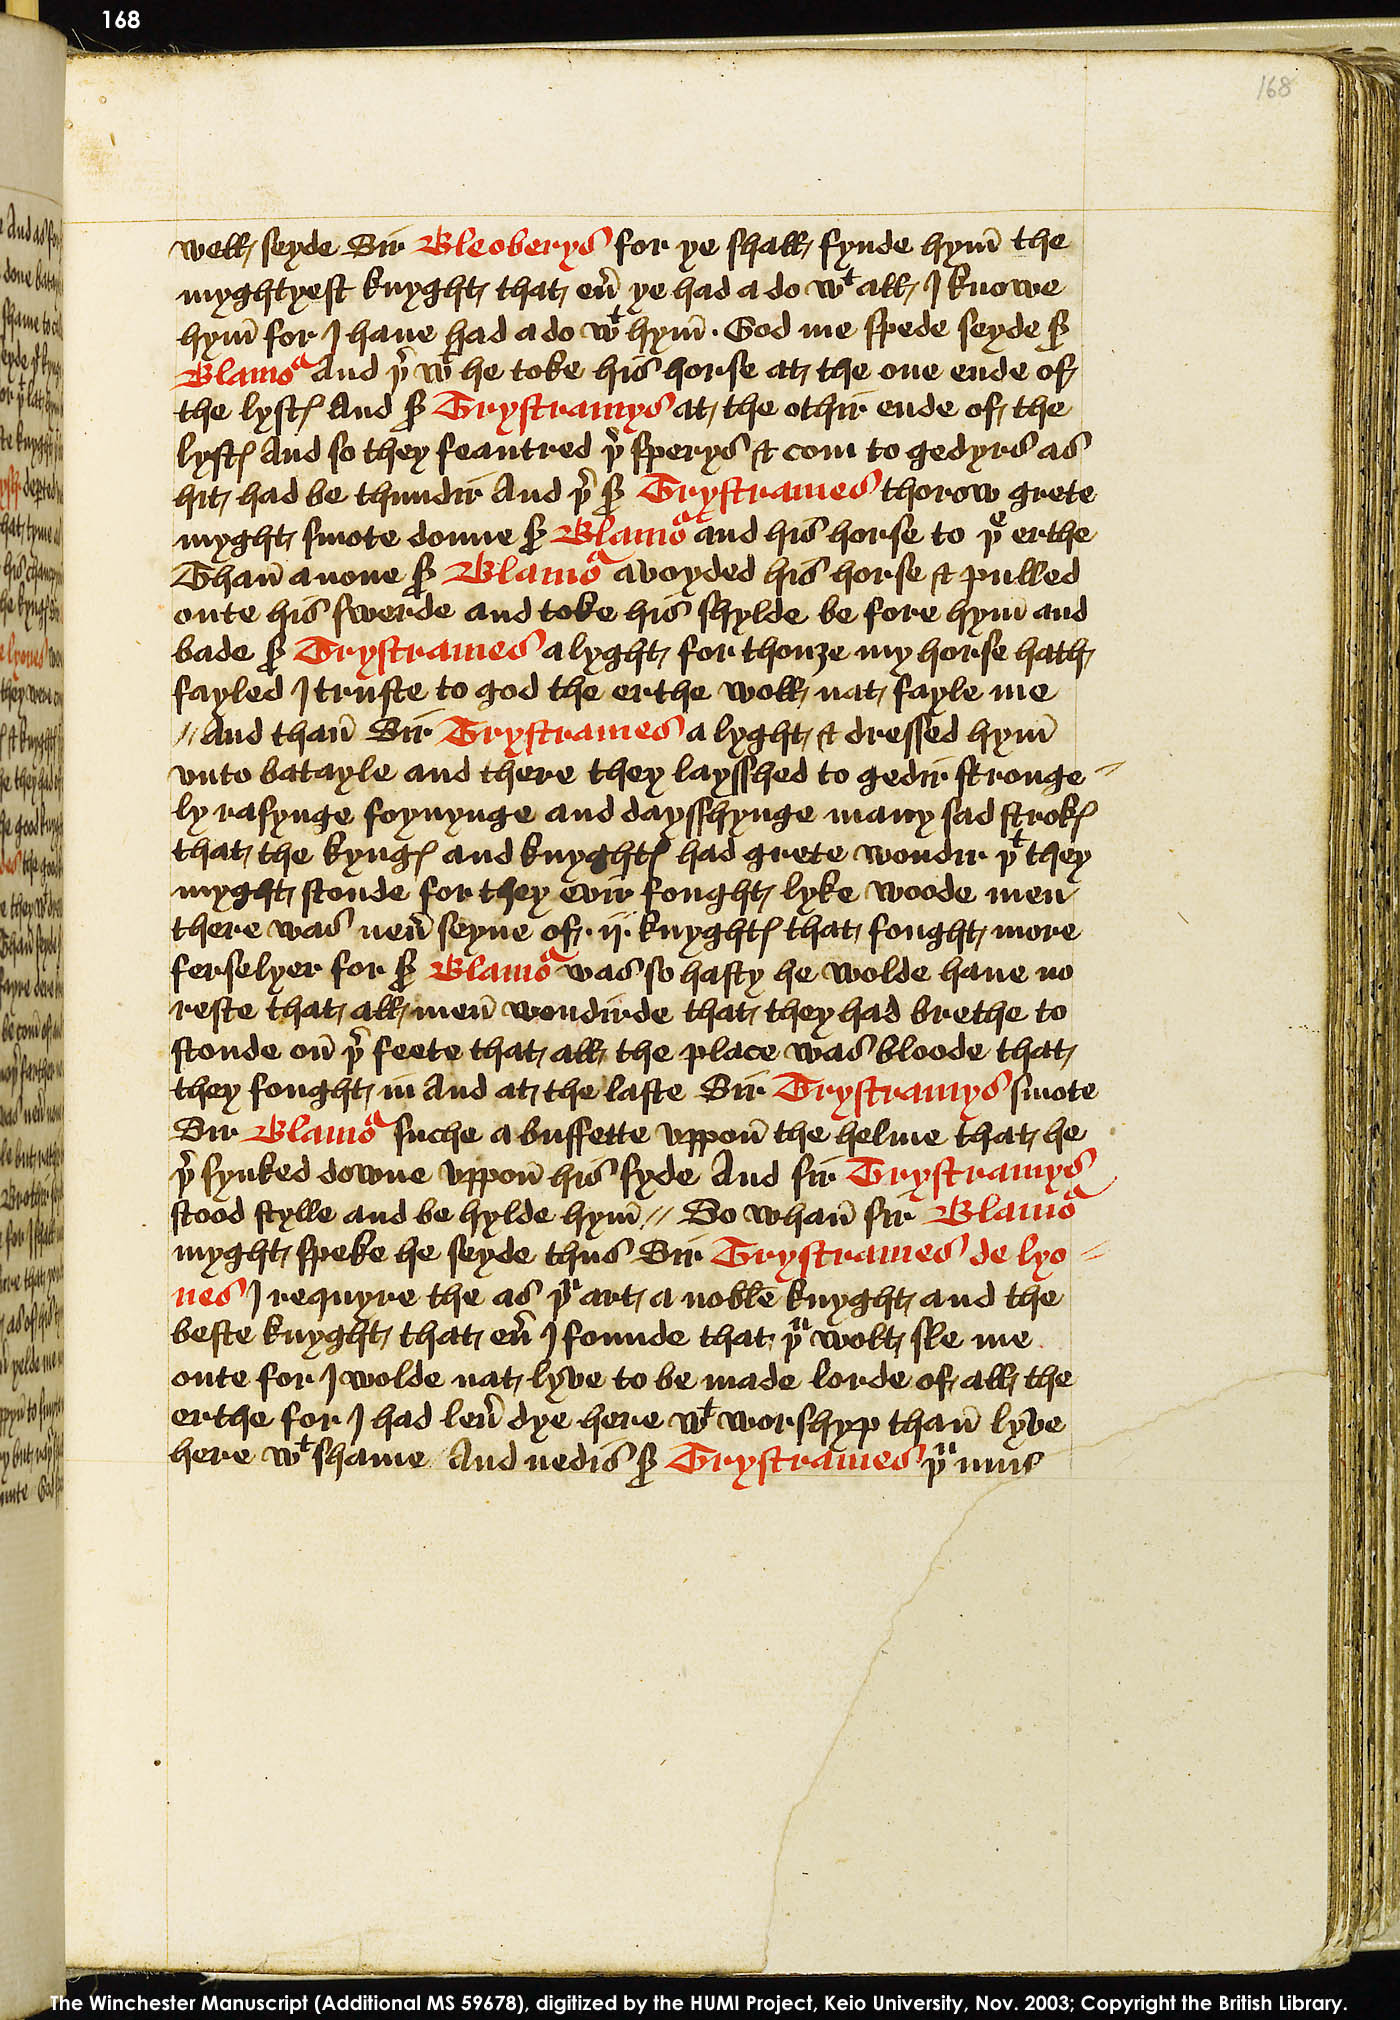 168
168
well seyde Sir Bleoberys for ye shall fynde hym̄ the
myghtyest knyght that eu̾ ye had a do wᵗ all I knowe
hym̄ for I haue had a do wᵗ hym̄ · God me spede seyde sͬ
Blamoᵃ And þͬ wᵗ he toke his horse at the one ende of
the lystꝭ And sͬ Trystramys at the othir ende of the
lystꝭ And so they feautred þͬ sperys & com to gedyrs as
hit had be thundir And þͬ sͬ Trystrames thorow grete
myght smote doune sͬ Blamoᵃ and his horse to þᵉ erthe
Than̄ anone sͬ Blamoᵃ avoyded his horse & pulled
oute his swerde and toke his shylde be fore hym̄ and
bade sͬ Trystrames a lyght for thouȝe my horse hath
fayled I truste to god the erthe woll nat fayle me
// And than̄ Sir Trystrames a lyght & dressed hym̄
vnto batayle and there they laysshed to gedir stronge //
ly rasynge foynynge and daysshynge many sad strokꝭ
that the kyngꝭ and knyghtꝭ had grete wondir þᵗ they
myght stonde for they evir fought lyke woode men
there was neu̾ seyne of · ij · knyghtꝭ that fought more
ferselyer for sͬ Blamoᵃ was so hasty he wolde haue no
reste that all men̄ wondirde that they had brethe to
stonde on̄ þͬ feete that all the place was bloode that
they fought in And at the laste Sir Trystramys smote
Sir Blamoᵃ suche a buffette vppon̄ the helme that he
þͬ synked downe vppon̄ his syde And sir Trystramys
stood stylle and be hylde hym̄ // So whan̄ sir Blamoᵃ
myght speke he seyde thus Sir Trystrames de lyo //
nes I requyre the as þᵘ art a noble knyght and the
beste knyght that eu̾ I founde that þᵘ wolt sle me
oute for I wolde nat lyve to be made lorde of all the
erthe for I had leu̾ dye here wᵗ worshyp than̄ lyve
here wᵗ shame And nedis sͬ Trystrames þᵘ mus
The Winchester Manuscript (Additional MS 59678), digitized by the HUMI Project, Keio University, Nov. 2003; Copyright the British Library.